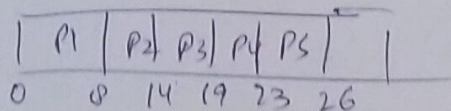 P1 P2 P3 P4 P5
0 8 14 19 23 26